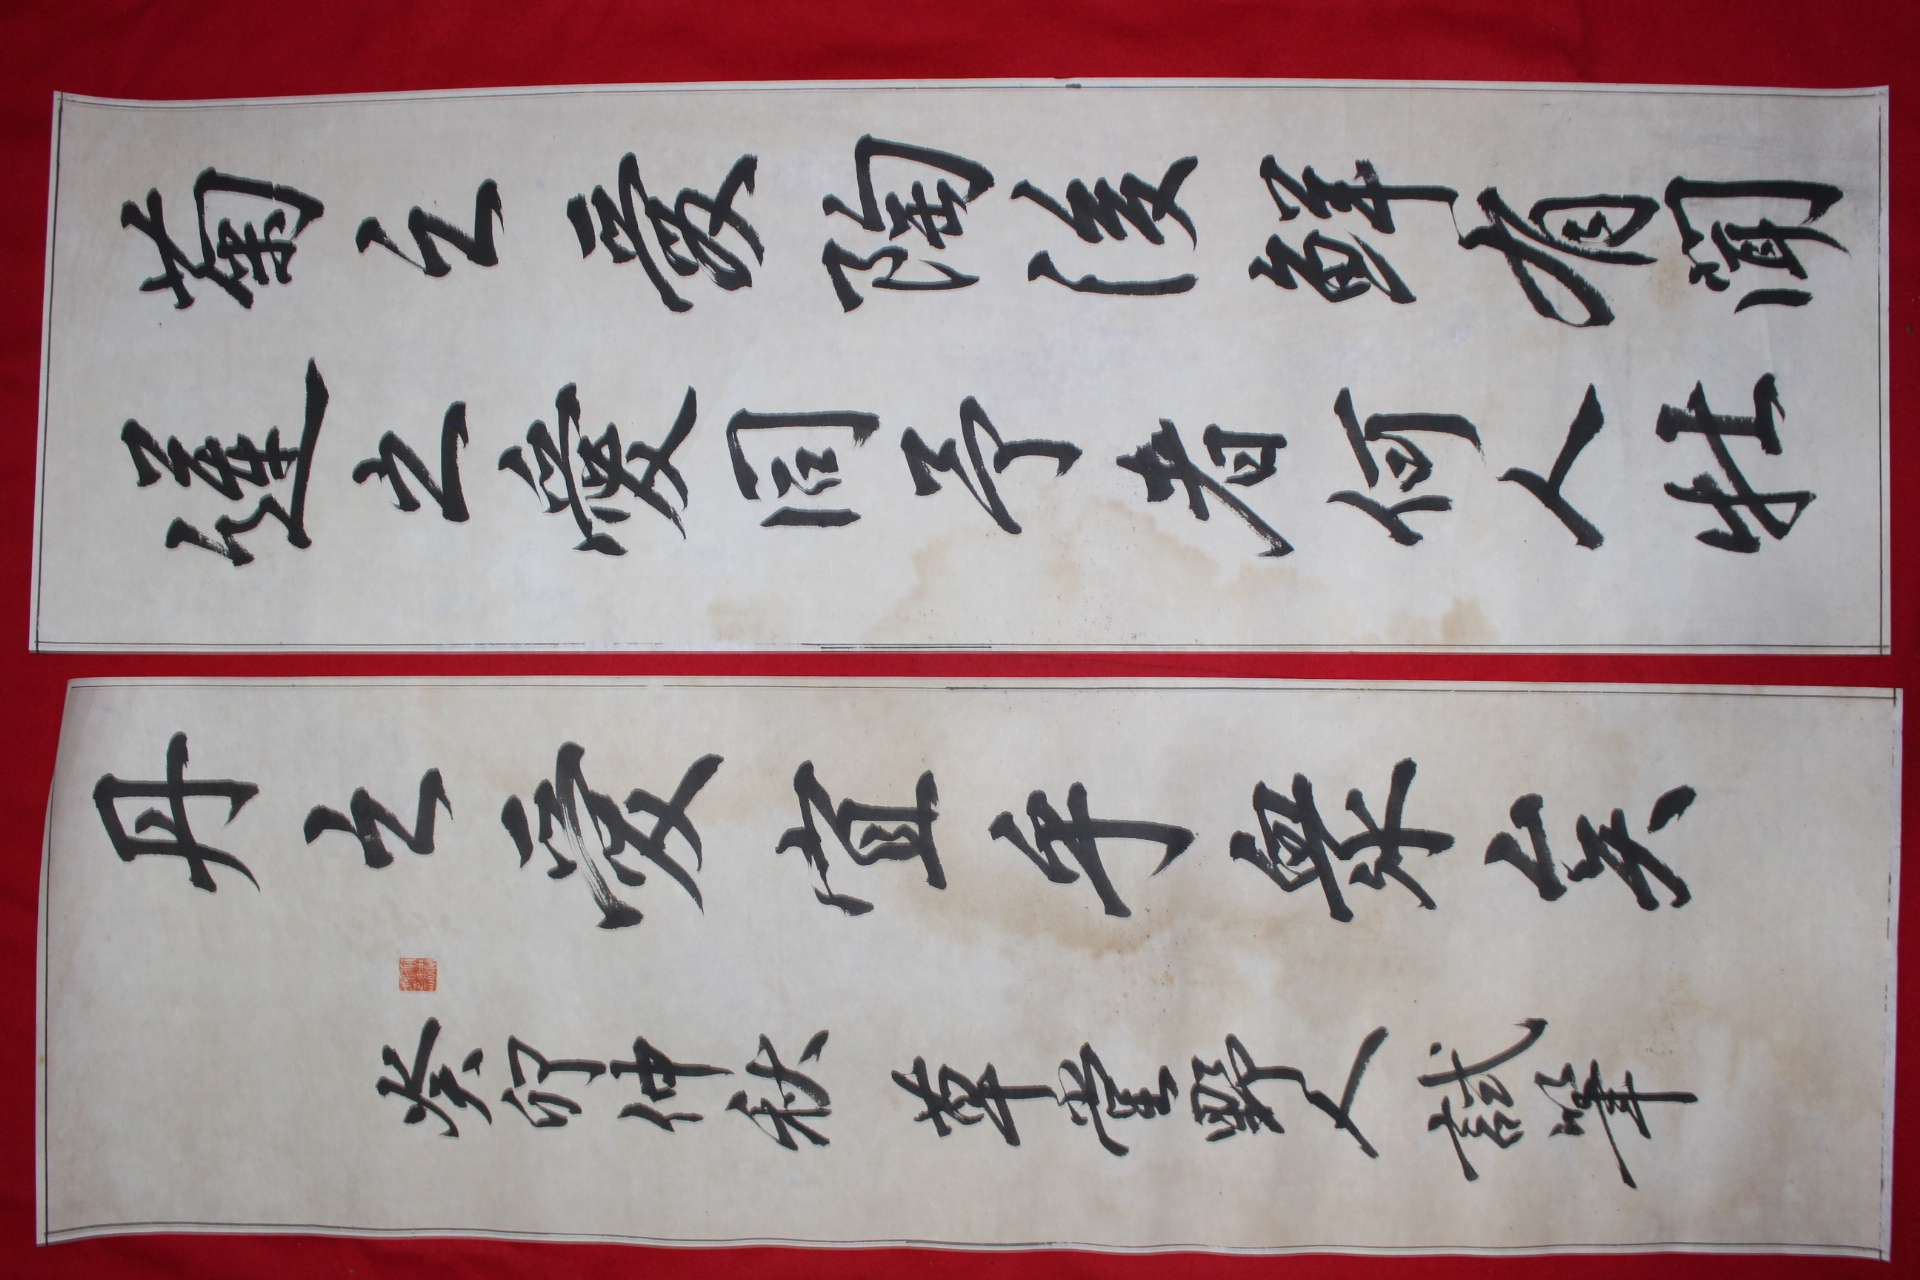 菊之愛陶後鮮有聞
蓮之愛同予者何人牡
丹之愛宜乎衆矣
癸卯仲秋 草堂野人 峰